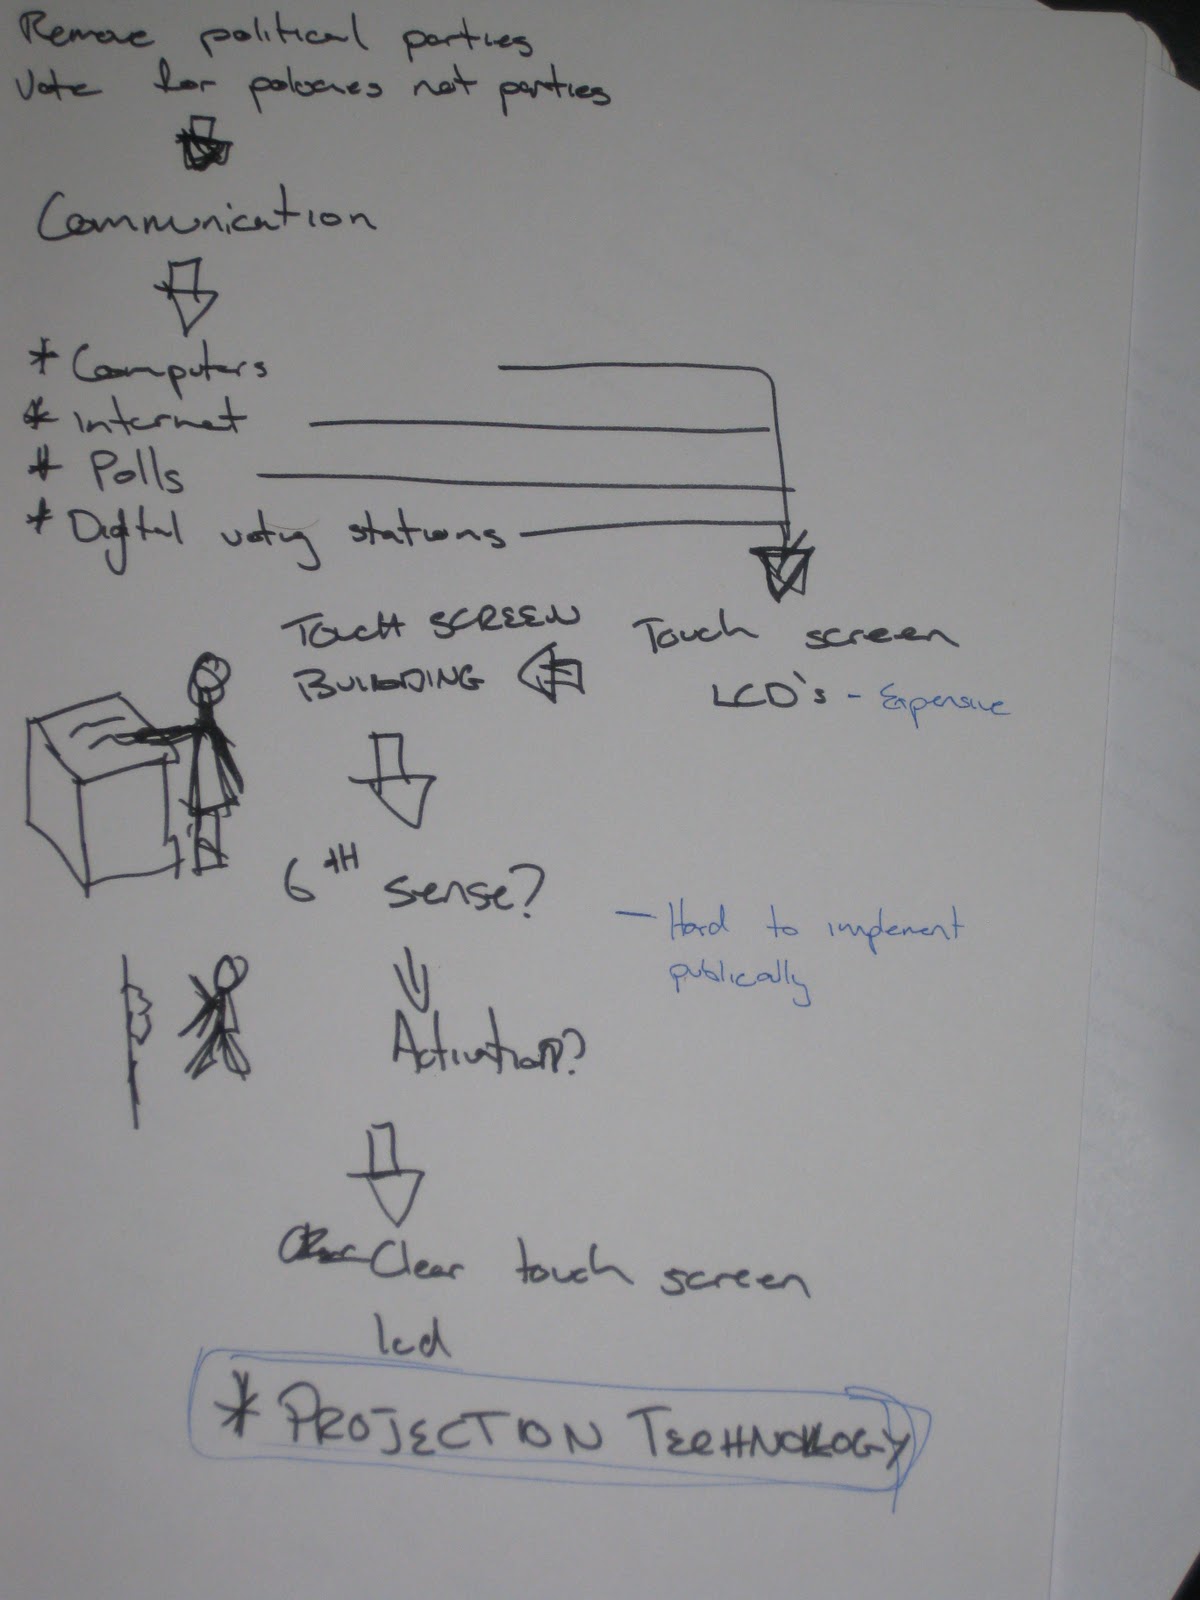 Remove political parties
Vote for polocies not parties
Communication
* Computers
* internet
* Polls
* Digital voting stations
TOUCH SCREEN
BUILDING
Touch screen
LCD's - Expensive
6TH sense?
- Hard to implement
publically
Activation?
Clear touch screen
lcd
* PROJECTION TECHNOLOGY